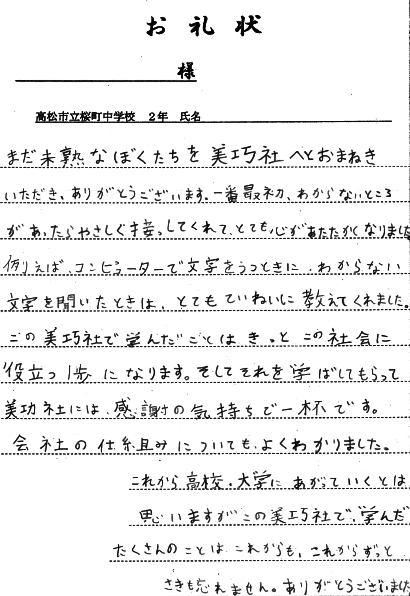 お礼状
様
高松市立桜町中学校 2年 氏名
まだ未熟なぼくたちを美巧社へとおまねき
いただき、ありがとうございます。一番最初、わからないところ
があったらやさしく接っしてくれて、とても心があたたかくなりました
例りえば、コンピューターで文字をうつときに、わからない
文字を聞いたときは、とてもていねいに教えてくれました。
この美巧社で学んだことはきっとこの社会に
役立つ1歩になります。そしてそれを学ばしてもらって
美功社には、感謝の気持ちで一杯です。
会社の仕組みについても、よくわかりました。
これから高校・大学にあがっていくとは
思いますがこの美巧社で、学んだ
たくさんのことは、これからも、これからずっと
さきも忘れません。ありがとうございました